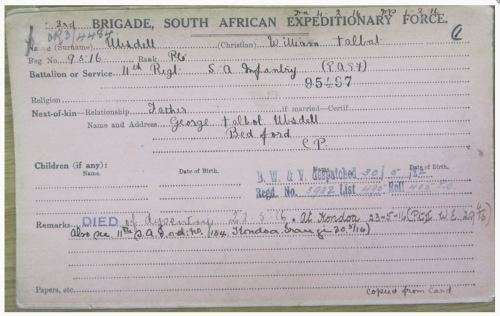 2nd BRIGADE, SOUTH AFRICAN EXPEDITIONARY FORCE.
Name (Surname) Ubsdell (Christian) William Talbot
Reg No. 9516 Rank Pte
Battalion or Service 11th Regt. S A Infantry (EAST)
95497
Religion
Next-of-kin—Relationship Father if married—Certif.
Name and Address George Talbot Ubsdell
Bedford
C.P.
Children (if any):
Name. Date of Birth. Name. Date of Birth.
B. W. & V. Despatched
Regd. No. List Roll
Remarks DIED of dysentery At Kondoa 23-5-16
Also see 11th S.A.I. (Kondoa Irangi
Papers, etc.
Copied from Card